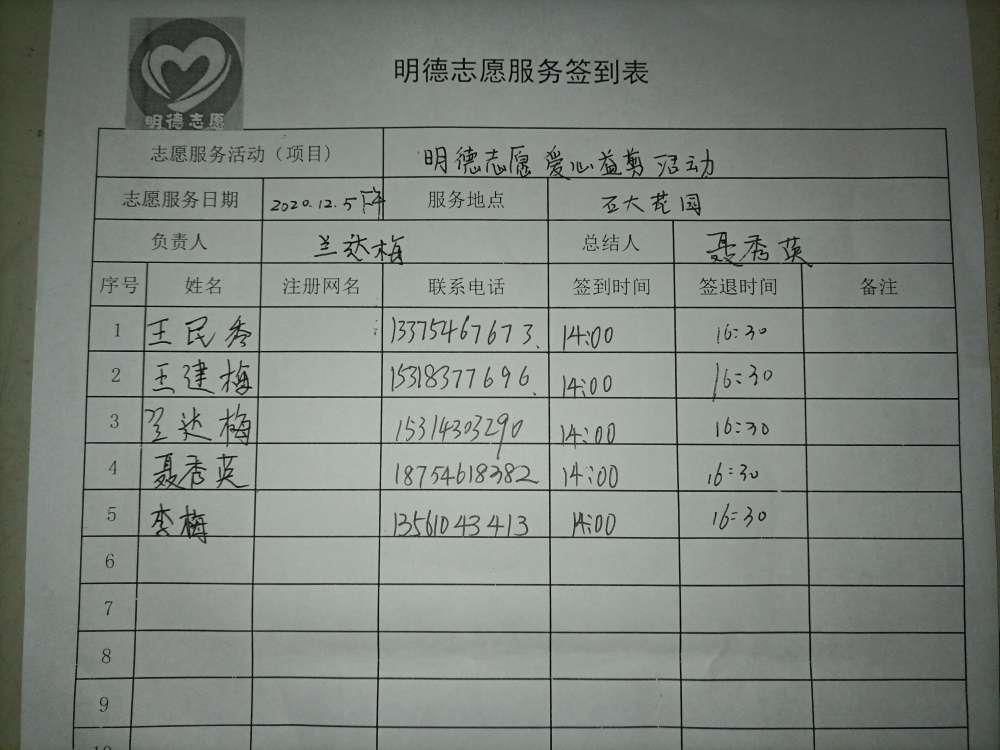 明德志愿
明德志愿服务签到表
志愿服务活动（项目） 明德志愿 爱心益剪 活动
志愿服务日期 2020.12.5下午 服务地点 石大花园
负责人 兰达梅 总结人 聂秀英
序号 姓名 注册网名 联系电话 签到时间 签退时间 备注
1 王民秀 13375467673. 14:00 16:30
2 王建梅 15318377696. 14:00 16:30
3 兰达梅 15314303290 14:00 16:30
4 聂秀英 18754618382 14:00 16:30
5 李梅 13561043413 14:00 16:30
6
7
8
9